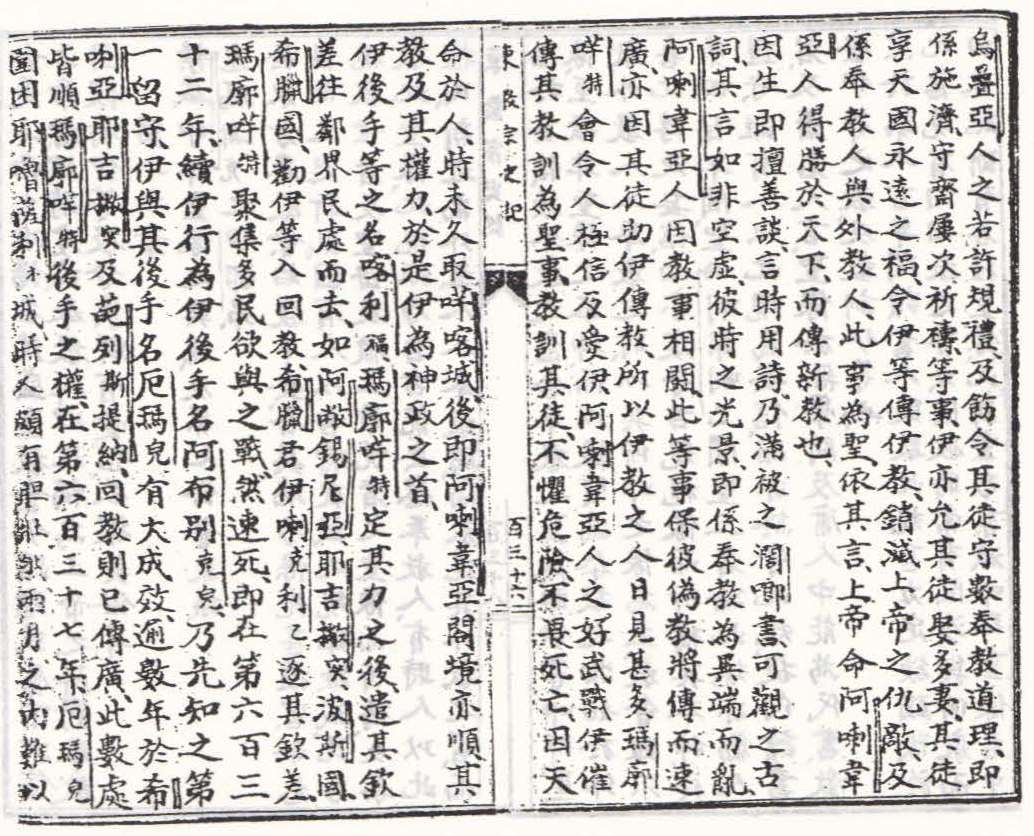 烏疊亞人之若許規禮、及飭令其徒守數奉教道理、即
係施濟、守齋屢次祈禱、等事、伊亦允其徒娶多妻、其徒
享天國永遠之福、令伊等傳伊教、銷滅上帝之仇敵、及
係奉教人與外教人、此事為聖、依其言、上帝命阿喇韋
亞人得勝於天下、而傳新教也、
因生即擅善談、言時用詩、乃滿被之濶啷書、可觀之古
詞、其言如非空虛、彼時之光景、即係奉教為異端而亂、
阿喇韋亞人因教事相鬪、此等事保彼偽教將傳而速
廣、亦因其徒助伊傳教、所以伊教之人日見甚多、瑪廓
咩特會令人極信及受伊、阿喇韋亞人之好武戰、伊催
傳其教訓為聖事、教訓其徒、不懼危險、不畏死亡、因天
東西史記
百三十六
命於人、時未久取咩喀城、後即阿喇韋亞闔境亦順、其
教及其權力、於是伊為神政之首、
伊後手等之名喀利福、瑪廓咩特定其力之後、遣其欽
差往鄰界民處而去、如阿敝錫尼亞、耶吉撒突、波斯國、
希臘國、勸伊等入回教、希臘君伊喇克利乙逐其欽差、
瑪廓咩特聚集多民欲與之戰、然速死、即在第六百三
十二年、續伊行為伊後手名阿布別克皃、乃先知之第
一留守、伊與其後手名厄瑪皃有大成效、逾數年於希
喇亞耶吉撒突及葩列斯提納、回教則已傳廣、此數處
皆順瑪廓咩特後手之權、在第六百三十七年、厄瑪皃
圍困耶嚕薩利木城、時人頗有膽壯、然兩月之內難以